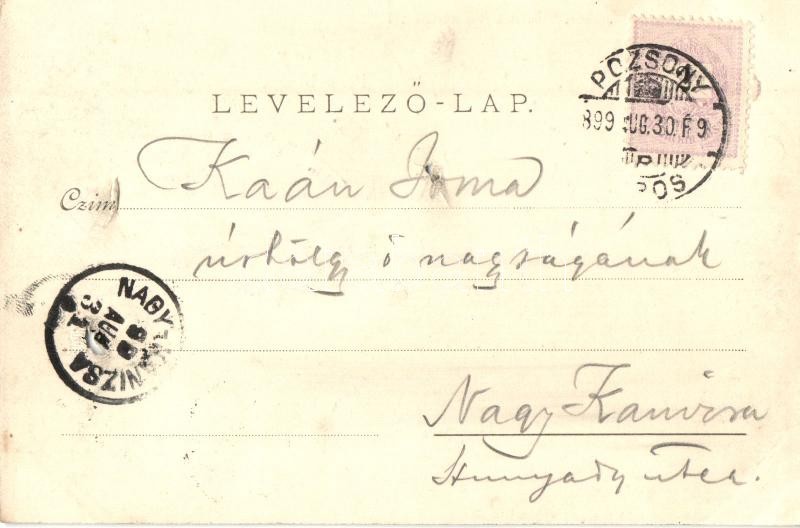 LEVELEZŐ-LAP.
POZSONY
899 AUG.30. F9
Czim
Kaán Irma
úrhölgy ő nagyságának
NAGY-KANIZSA
99
AUG
31
Nagy Kanizsa
Hunyady utca.